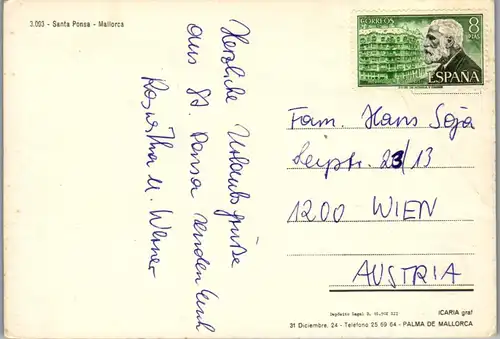 3.093 - Santa Ponsa - Mallorca
Herzliche Urlaubsgrüße
aus St. Ponsa senden Euch
Roswitha u. Werner
CORREOS
8 PTAS
ESPAÑA
Fam. Hans Soja
Leipstr. 23/13
1200 WIEN
AUSTRIA
ICARIA graf
31 Diciembre, 24 - Teléfono 25 69 64 - PALMA DE MALLORCA